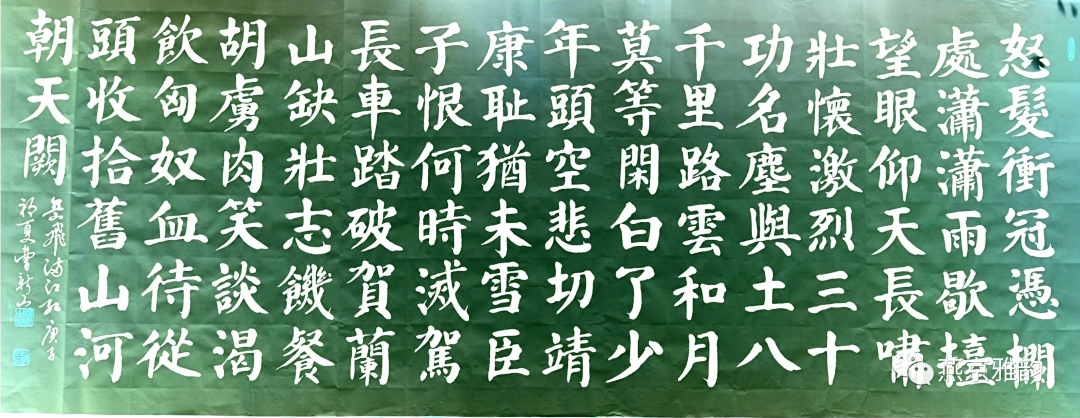 怒髮衝冠憑欄
處瀟瀟雨歇擡
望眼仰天長嘯
壯懷激烈三十
功名塵與土八
千里路雲和月
莫等閑白了少
年頭空悲切靖
康耻猶未雪臣
子恨何時滅駕
長車踏破賀蘭
山缺壯志饑餐
胡虜肉笑談渴
飲匈奴血待從
頭收拾舊山河
朝天闕
岳飛滿江紅庚子
初夏
燕京雅韵